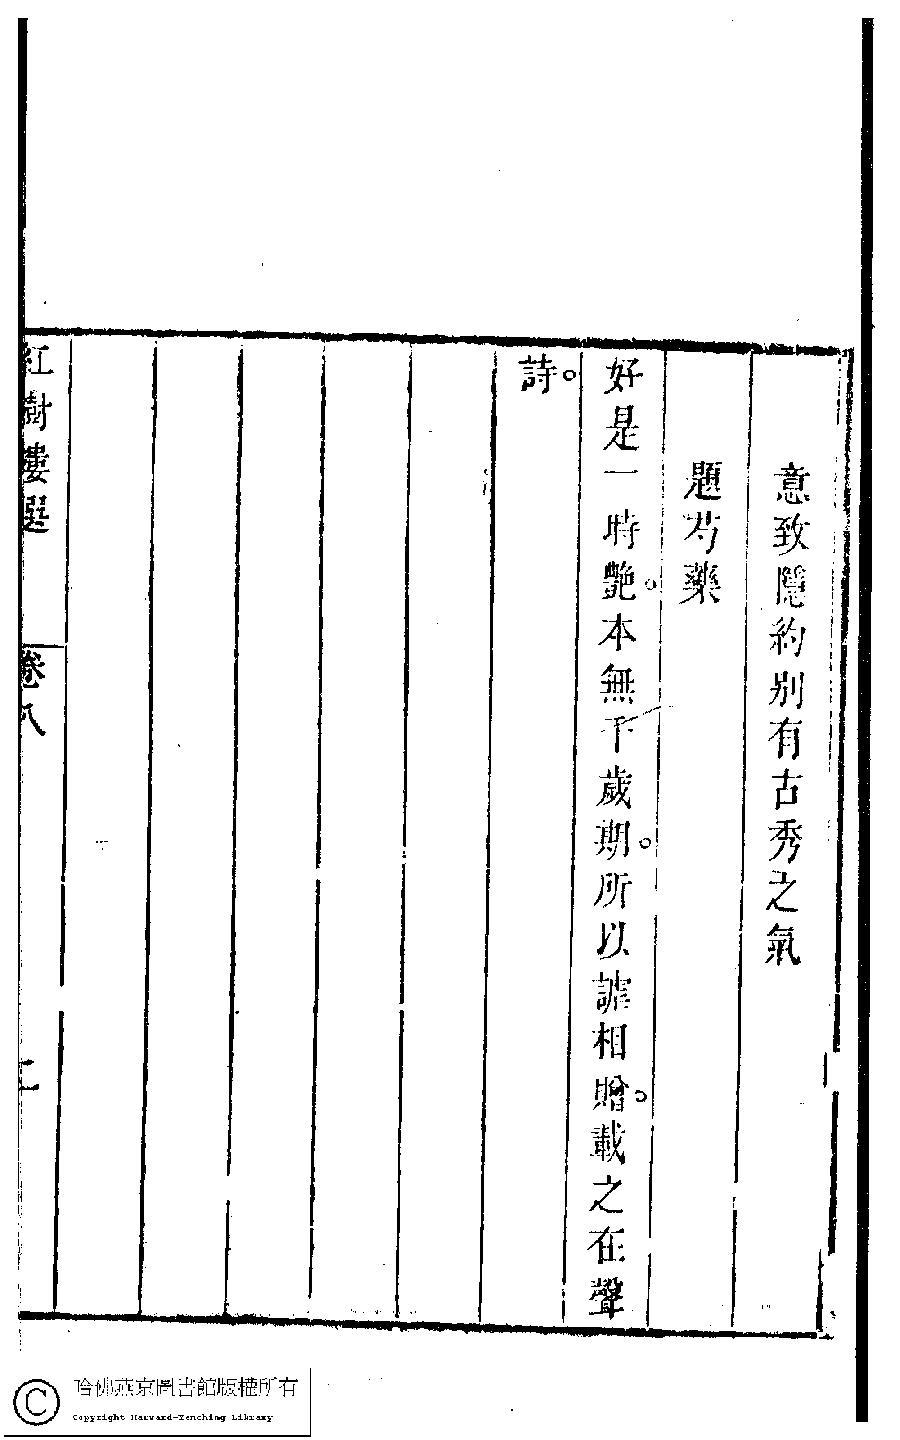 意致隱約别有古秀之氣
題芍藥
好是一時艷。本無千歲期。所以謔相贈。載之在聲
詩。
紅樹樓選 卷八 二
哈佛燕京圖書館版權所有
Copyright Harvard-Yenching Library